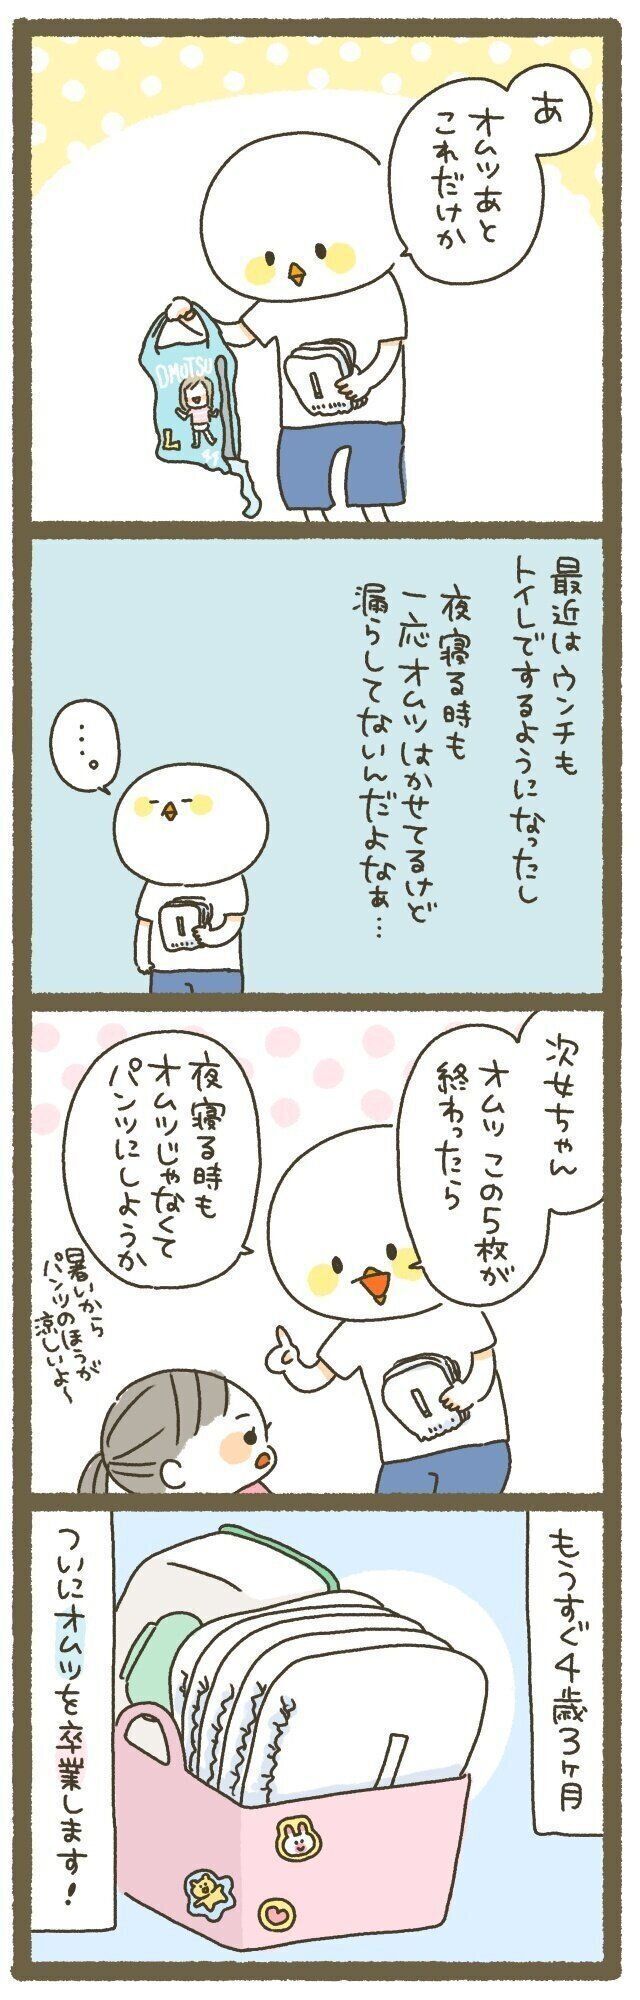 あ
オムツあと
これだけか
OMUTSU
L
最近は ウンチも
トイレでするようになったし
夜寝る時も
一応オムツはかせてるけど
漏らしてないんだよなぁ…
…。
次女ちゃん
オムツ この5枚が
終わったら
夜寝る時も
オムツじゃなくて
パンツにしようか
暑いから
パンツのほうが
涼しいよ〜
もうすぐ4歳3ヶ月
ついにオムツを卒業します!